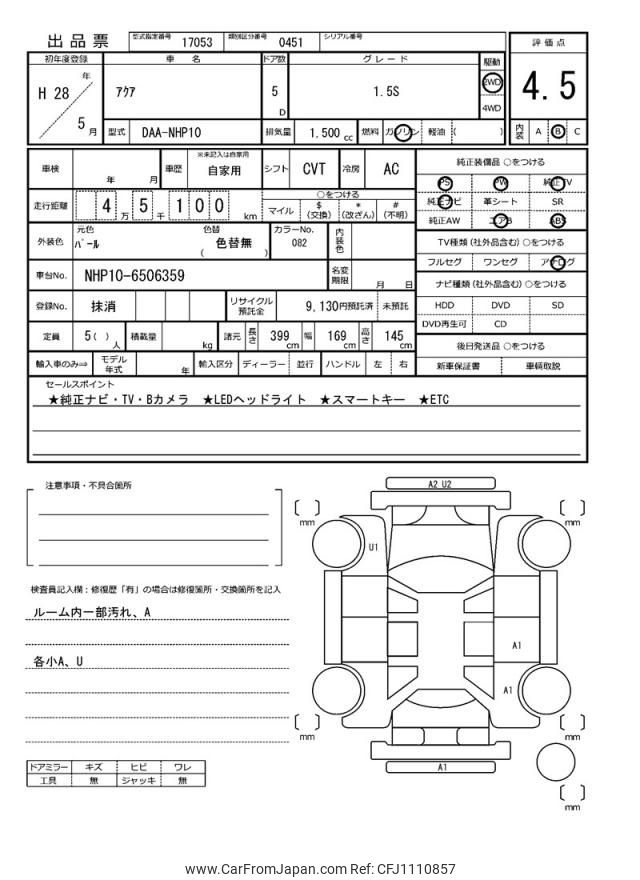 出品票
型式指定番号 17053 類別区分番号 0451 シリアル番号
評価点
4.5
内装 A B C
初年度登録 車名 ドア数 グレード 駆動
H 28 年 5 月
アクア 5 D 1.5S
2WD
4WD
型式 DAA-NHP10 排気量 1.500 cc 燃料 ガソリン 軽油 ( )
車検 年 月 車歴 ※未記入は自家用 自家用 シフト CVT 冷房 AC
走行距離 4 万 5 千 1 0 0 km
○をつける
マイル $(交換) *(改ざん) #(不明)
外装色 元色 パール 色替 ( 色替無 ) カラーNo. 082 内装色
車台No. NHP10-6506359 名変期限 月 日
登録No. 抹消 リサイクル預託金 9,130円預託済 未預託
定員 5( ) 人 積載量 kg 諸元 長さ 399 cm 幅 169 cm 高さ 145 cm
輸入車のみ⇒ モデル年式 年 輸入区分 ディーラー 並行 ハンドル 左 右
純正装備品 ○をつける
PS PW 純正TV
純正ナビ 革シート SR
純正AW エアB ABS
TV種類 (社外品含む) ○をつける
フルセグ ワンセグ アナログ
ナビ種類 (社外品含む) ○をつける
HDD DVD SD
DVD再生可 CD
後日発送品 ○をつける
新車保証書 車輌取説
セールスポイント
★純正ナビ・TV・Bカメラ ★LEDヘッドライト ★スマートキー ★ETC
注意事項・不具合箇所
検査員記入欄：修復歴「有」の場合は修復箇所・交換箇所を記入
ルーム内一部汚れ、A
各小A、U
ドアミラー キズ ヒビ ワレ
工具 無 ジャッキ 無
A2 U2
mm
mm
U1
A1
A1
mm
mm
A1
mm
www.CarFromJapan.com Ref: CFJ1110857